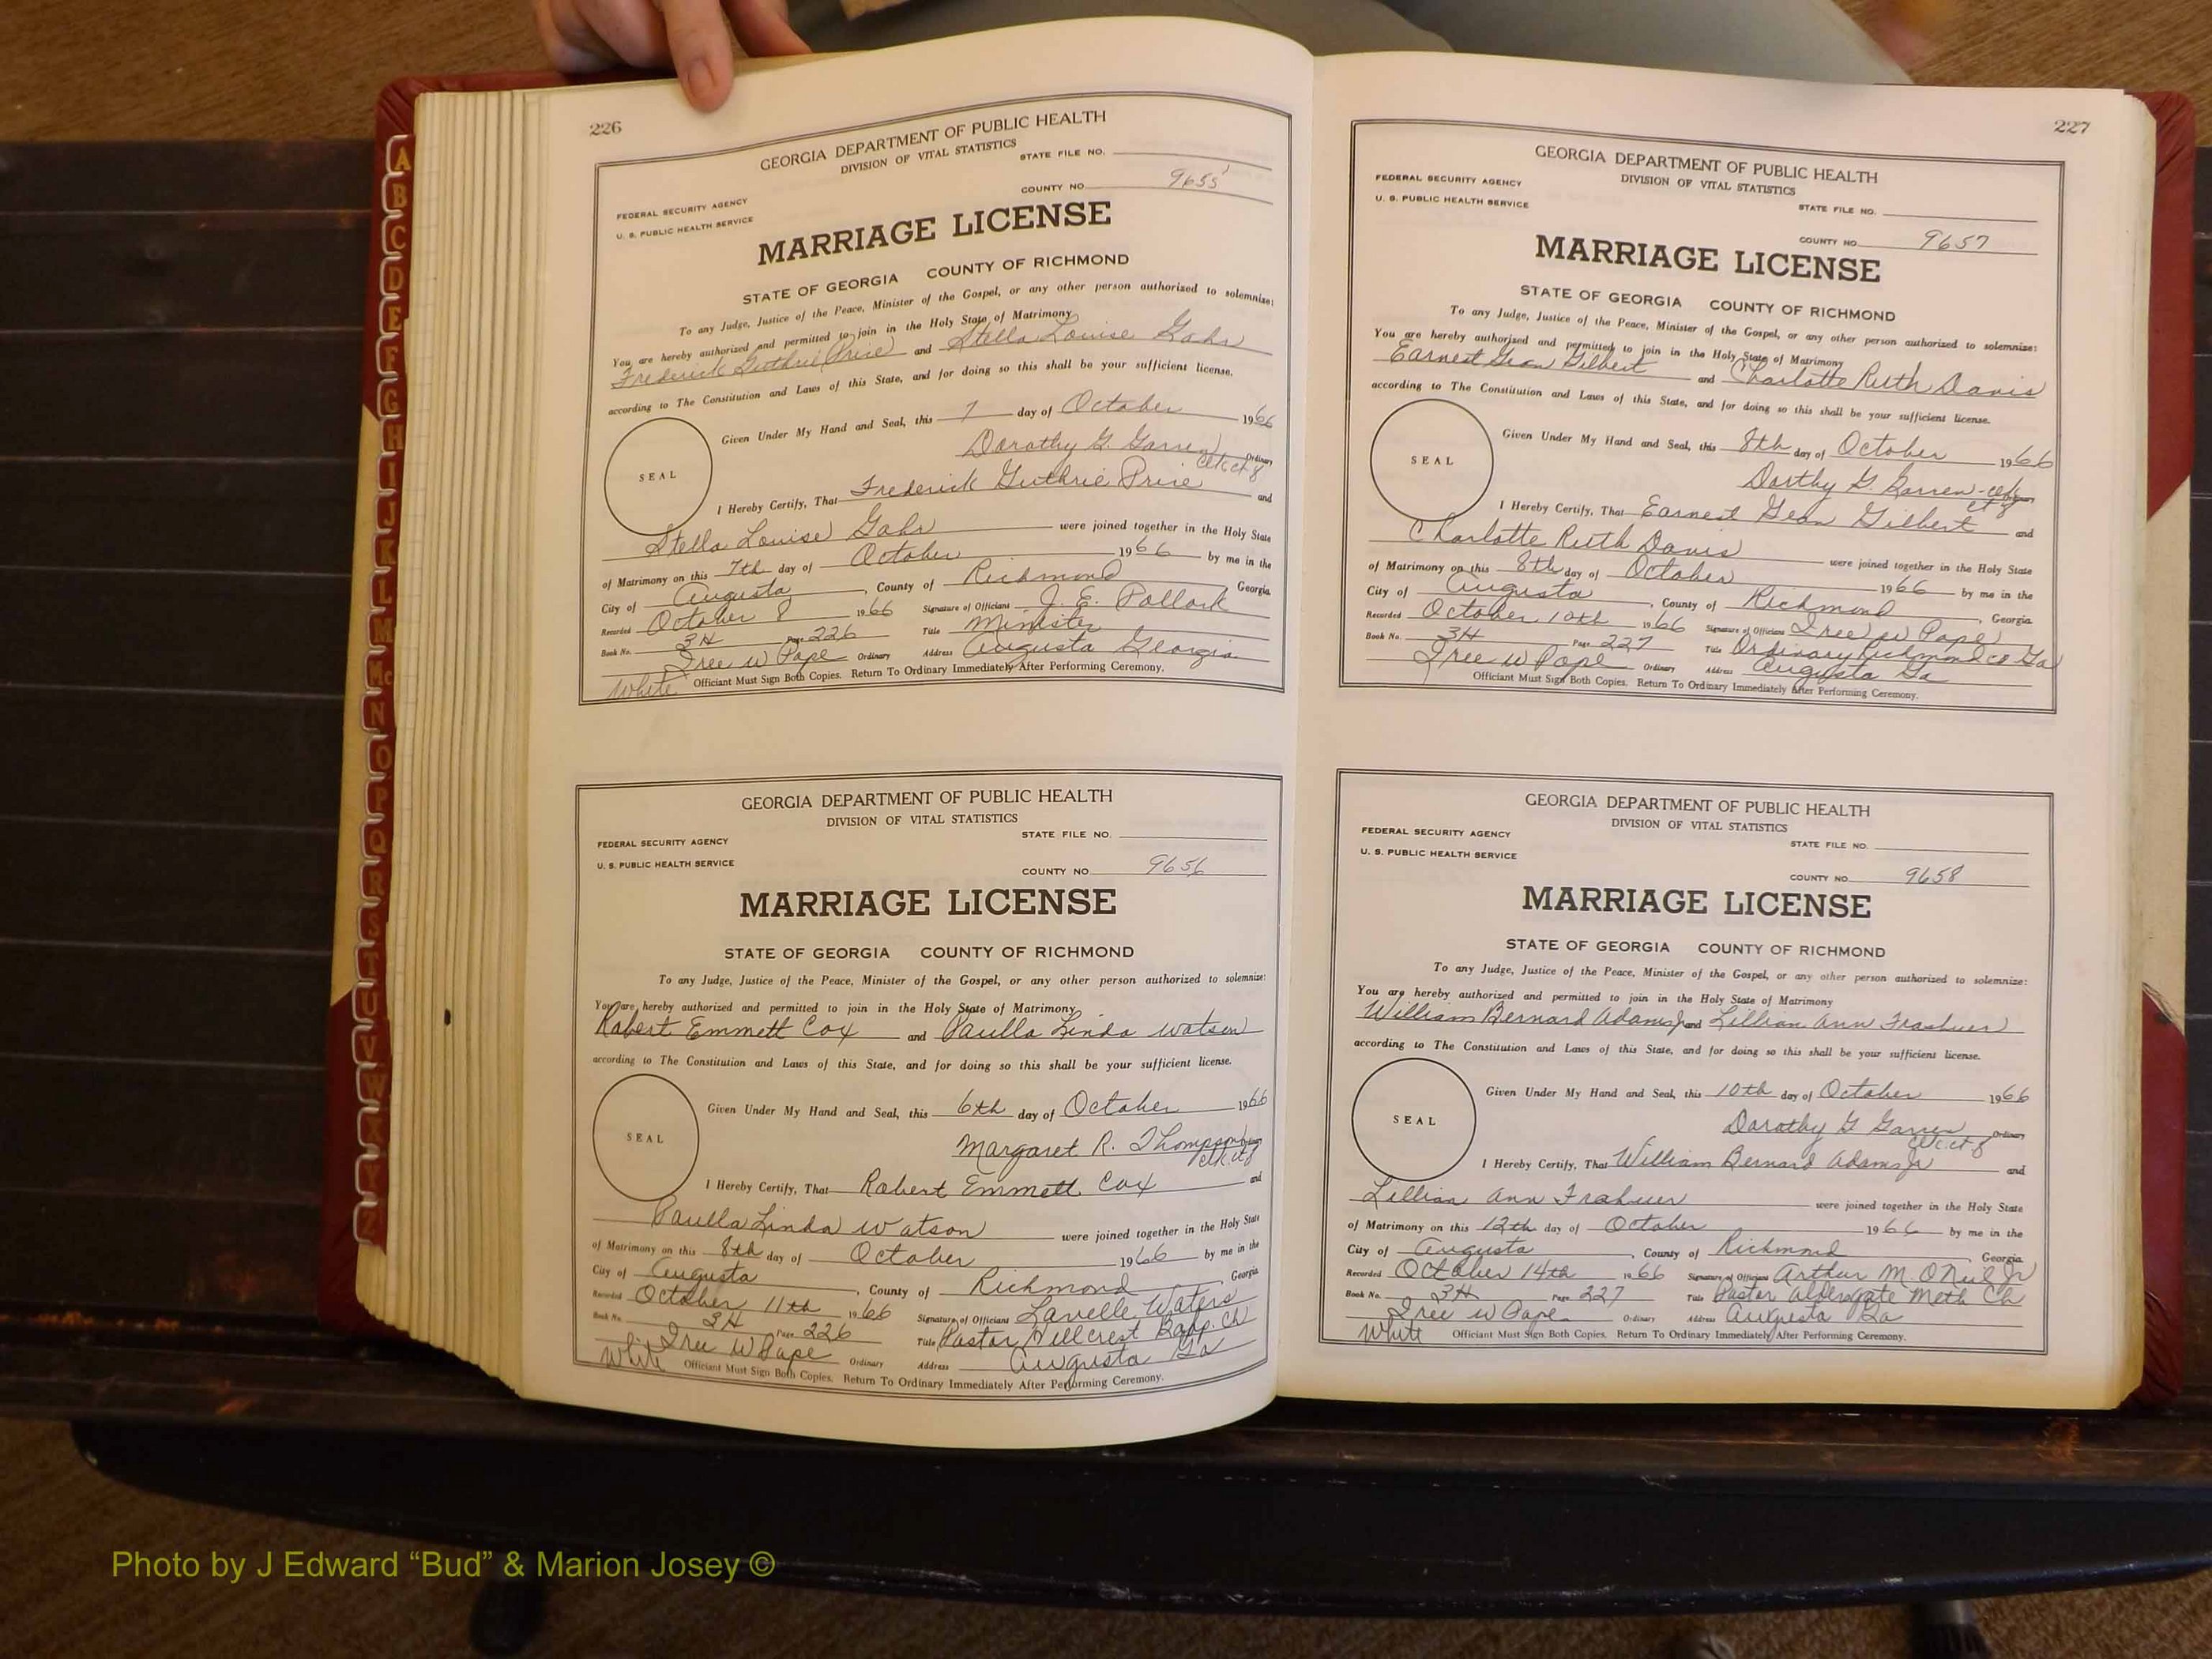 226
GEORGIA DEPARTMENT OF PUBLIC HEALTH
DIVISION OF VITAL STATISTICS
STATE FILE NO.
COUNTY NO. 9655
FEDERAL SECURITY AGENCY
U. S. PUBLIC HEALTH SERVICE
MARRIAGE LICENSE
STATE OF GEORGIA COUNTY OF RICHMOND
To any Judge, Justice of the Peace, Minister of the Gospel, or any other person authorized to solemnize:
You are hereby authorized and permitted to join in the Holy State of Matrimony
Frederick Guthrie Price and Stella Louise Gahr
according to The Constitution and Laws of this State, and for doing so this shall be your sufficient license.
Given Under My Hand and Seal, this 7 day of October 1966
SEAL
Dorothy G. Garren Ordinary
clk ct of
I Hereby Certify, That Frederick Guthrie Price and
Stella Louise Gahr were joined together in the Holy State
of Matrimony on this 7th day of October 1966 by me in the
City of Augusta, County of Richmond Georgia
Recorded October 8 1966 Signature of Officiant J. E. Pollock
Book No. 3H Page 226 Title Minister
Iree W Pape Ordinary Address Augusta Georgia
White Officiant Must Sign Both Copies. Return To Ordinary Immediately After Performing Ceremony.
GEORGIA DEPARTMENT OF PUBLIC HEALTH
DIVISION OF VITAL STATISTICS
STATE FILE NO.
FEDERAL SECURITY AGENCY
U. S. PUBLIC HEALTH SERVICE
COUNTY NO. 9656
MARRIAGE LICENSE
STATE OF GEORGIA COUNTY OF RICHMOND
To any Judge, Justice of the Peace, Minister of the Gospel, or any other person authorized to solemnize:
You are hereby authorized and permitted to join in the Holy State of Matrimony
Robert Emmett Cox and Paulla Linda Watson
according to The Constitution and Laws of this State, and for doing so this shall be your sufficient license.
Given Under My Hand and Seal, this 6th day of October 1966
SEAL
Margaret R. Thompson Ordinary
clk. ct of
I Hereby Certify, That Robert Emmett Cox and
Paulla Linda Watson were joined together in the Holy State
of Matrimony on this 8th day of October 1966 by me in the
City of Augusta, County of Richmond, Georgia
Recorded October 11th 1966 Signature of Officiant Lavelle Waters
Book No. 3H Page 226 Title Pastor Hillcrest Bapp. Ch
Iree W Pape Ordinary Address Augusta Ga
White Officiant Must Sign Both Copies. Return To Ordinary Immediately After Performing Ceremony.
227
GEORGIA DEPARTMENT OF PUBLIC HEALTH
DIVISION OF VITAL STATISTICS
FEDERAL SECURITY AGENCY
U. S. PUBLIC HEALTH SERVICE
STATE FILE NO.
COUNTY NO. 9657
MARRIAGE LICENSE
STATE OF GEORGIA COUNTY OF RICHMOND
To any Judge, Justice of the Peace, Minister of the Gospel, or any other person authorized to solemnize:
You are hereby authorized and permitted to join in the Holy State of Matrimony
Earnest Gean Gilbert and Charlotte Ruth Davis
according to The Constitution and Laws of this State, and for doing so this shall be your sufficient license.
Given Under My Hand and Seal, this 8th day of October 1966
SEAL
Dorthy G. Garren - clk
ct of
I Hereby Certify, That Earnest Gean Gilbert and
Charlotte Ruth Davis were joined together in the Holy State
of Matrimony on this 8th day of October 1966 by me in the
City of Augusta, County of Richmond, Georgia
Recorded October 10th 1966 Signature of Officiant Iree W Pape
Book No. 3H Page 227 Title Ordinary Richmond co Ga
Iree W Pape Ordinary Address Augusta Ga
Officiant Must Sign Both Copies. Return To Ordinary Immediately After Performing Ceremony.
GEORGIA DEPARTMENT OF PUBLIC HEALTH
DIVISION OF VITAL STATISTICS
FEDERAL SECURITY AGENCY
U. S. PUBLIC HEALTH SERVICE
STATE FILE NO.
COUNTY NO. 9658
MARRIAGE LICENSE
STATE OF GEORGIA COUNTY OF RICHMOND
To any Judge, Justice of the Peace, Minister of the Gospel, or any other person authorized to solemnize:
You are hereby authorized and permitted to join in the Holy State of Matrimony
William Bernard Adams Jr and Lillian Ann
according to The Constitution and Laws of this State, and for doing so this shall be your sufficient license.
Given Under My Hand and Seal, this 10th day of October 1966
SEAL
Dorothy G Garren Ordinary
clk. ct of
I Hereby Certify, That William Bernard Adams Jr and
Lillian Ann were joined together in the Holy State
of Matrimony on this 12th day of October 1966 by me in the
City of Augusta, County of Richmond, Georgia
Recorded October 14th 1966 Signature of Officiant Arthur M. O'Neil Jr
Book No. 3H Page 227 Title Pastor Aldersgate Meth Ch
Iree W Pape Ordinary Address Augusta Ga
White Officiant Must Sign Both Copies. Return To Ordinary Immediately After Performing Ceremony.
A
B
C
D
E
F
G
H
I
J
K
L
M
Mc
N
O
P
Q
R
S
T
U
V
W
X
Y
Z
Photo by J Edward “Bud” & Marion Josey ©